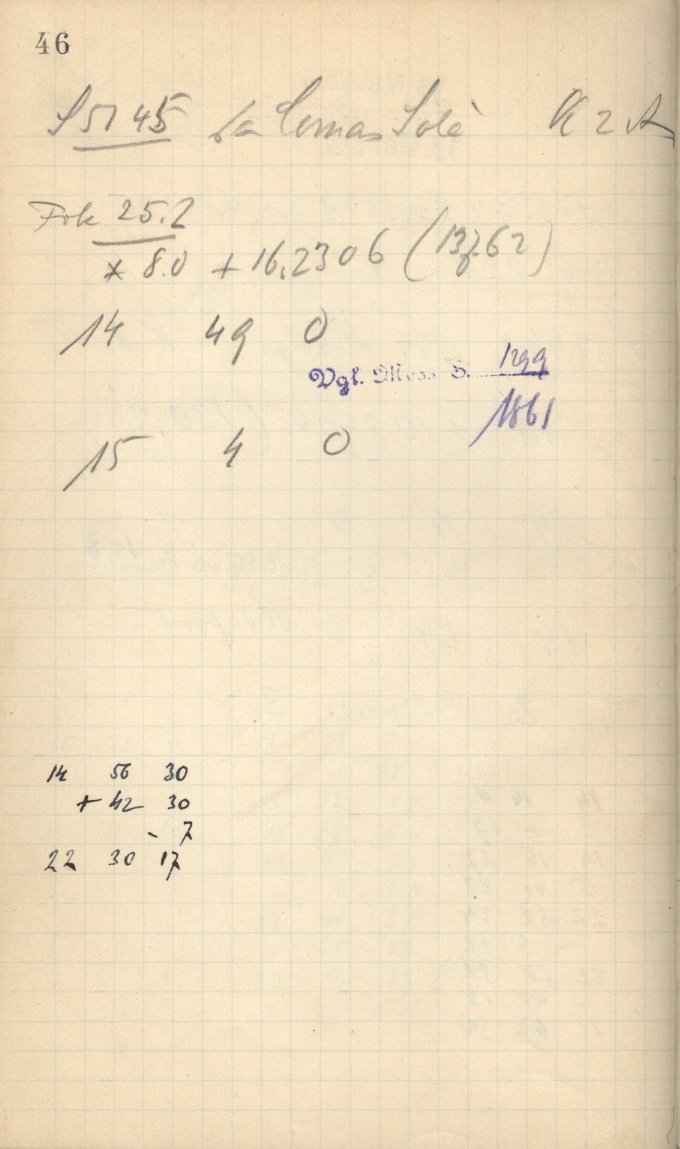 46
S 5145 La Comas Solà K 2 A
Fok 25.2
* 8.0 + 16,2306 (13h62)
14 49 0
Vgl. Mess B. 1299
1861
15 4 0
14 56 30
+ 42 30
- 7
22 30 17